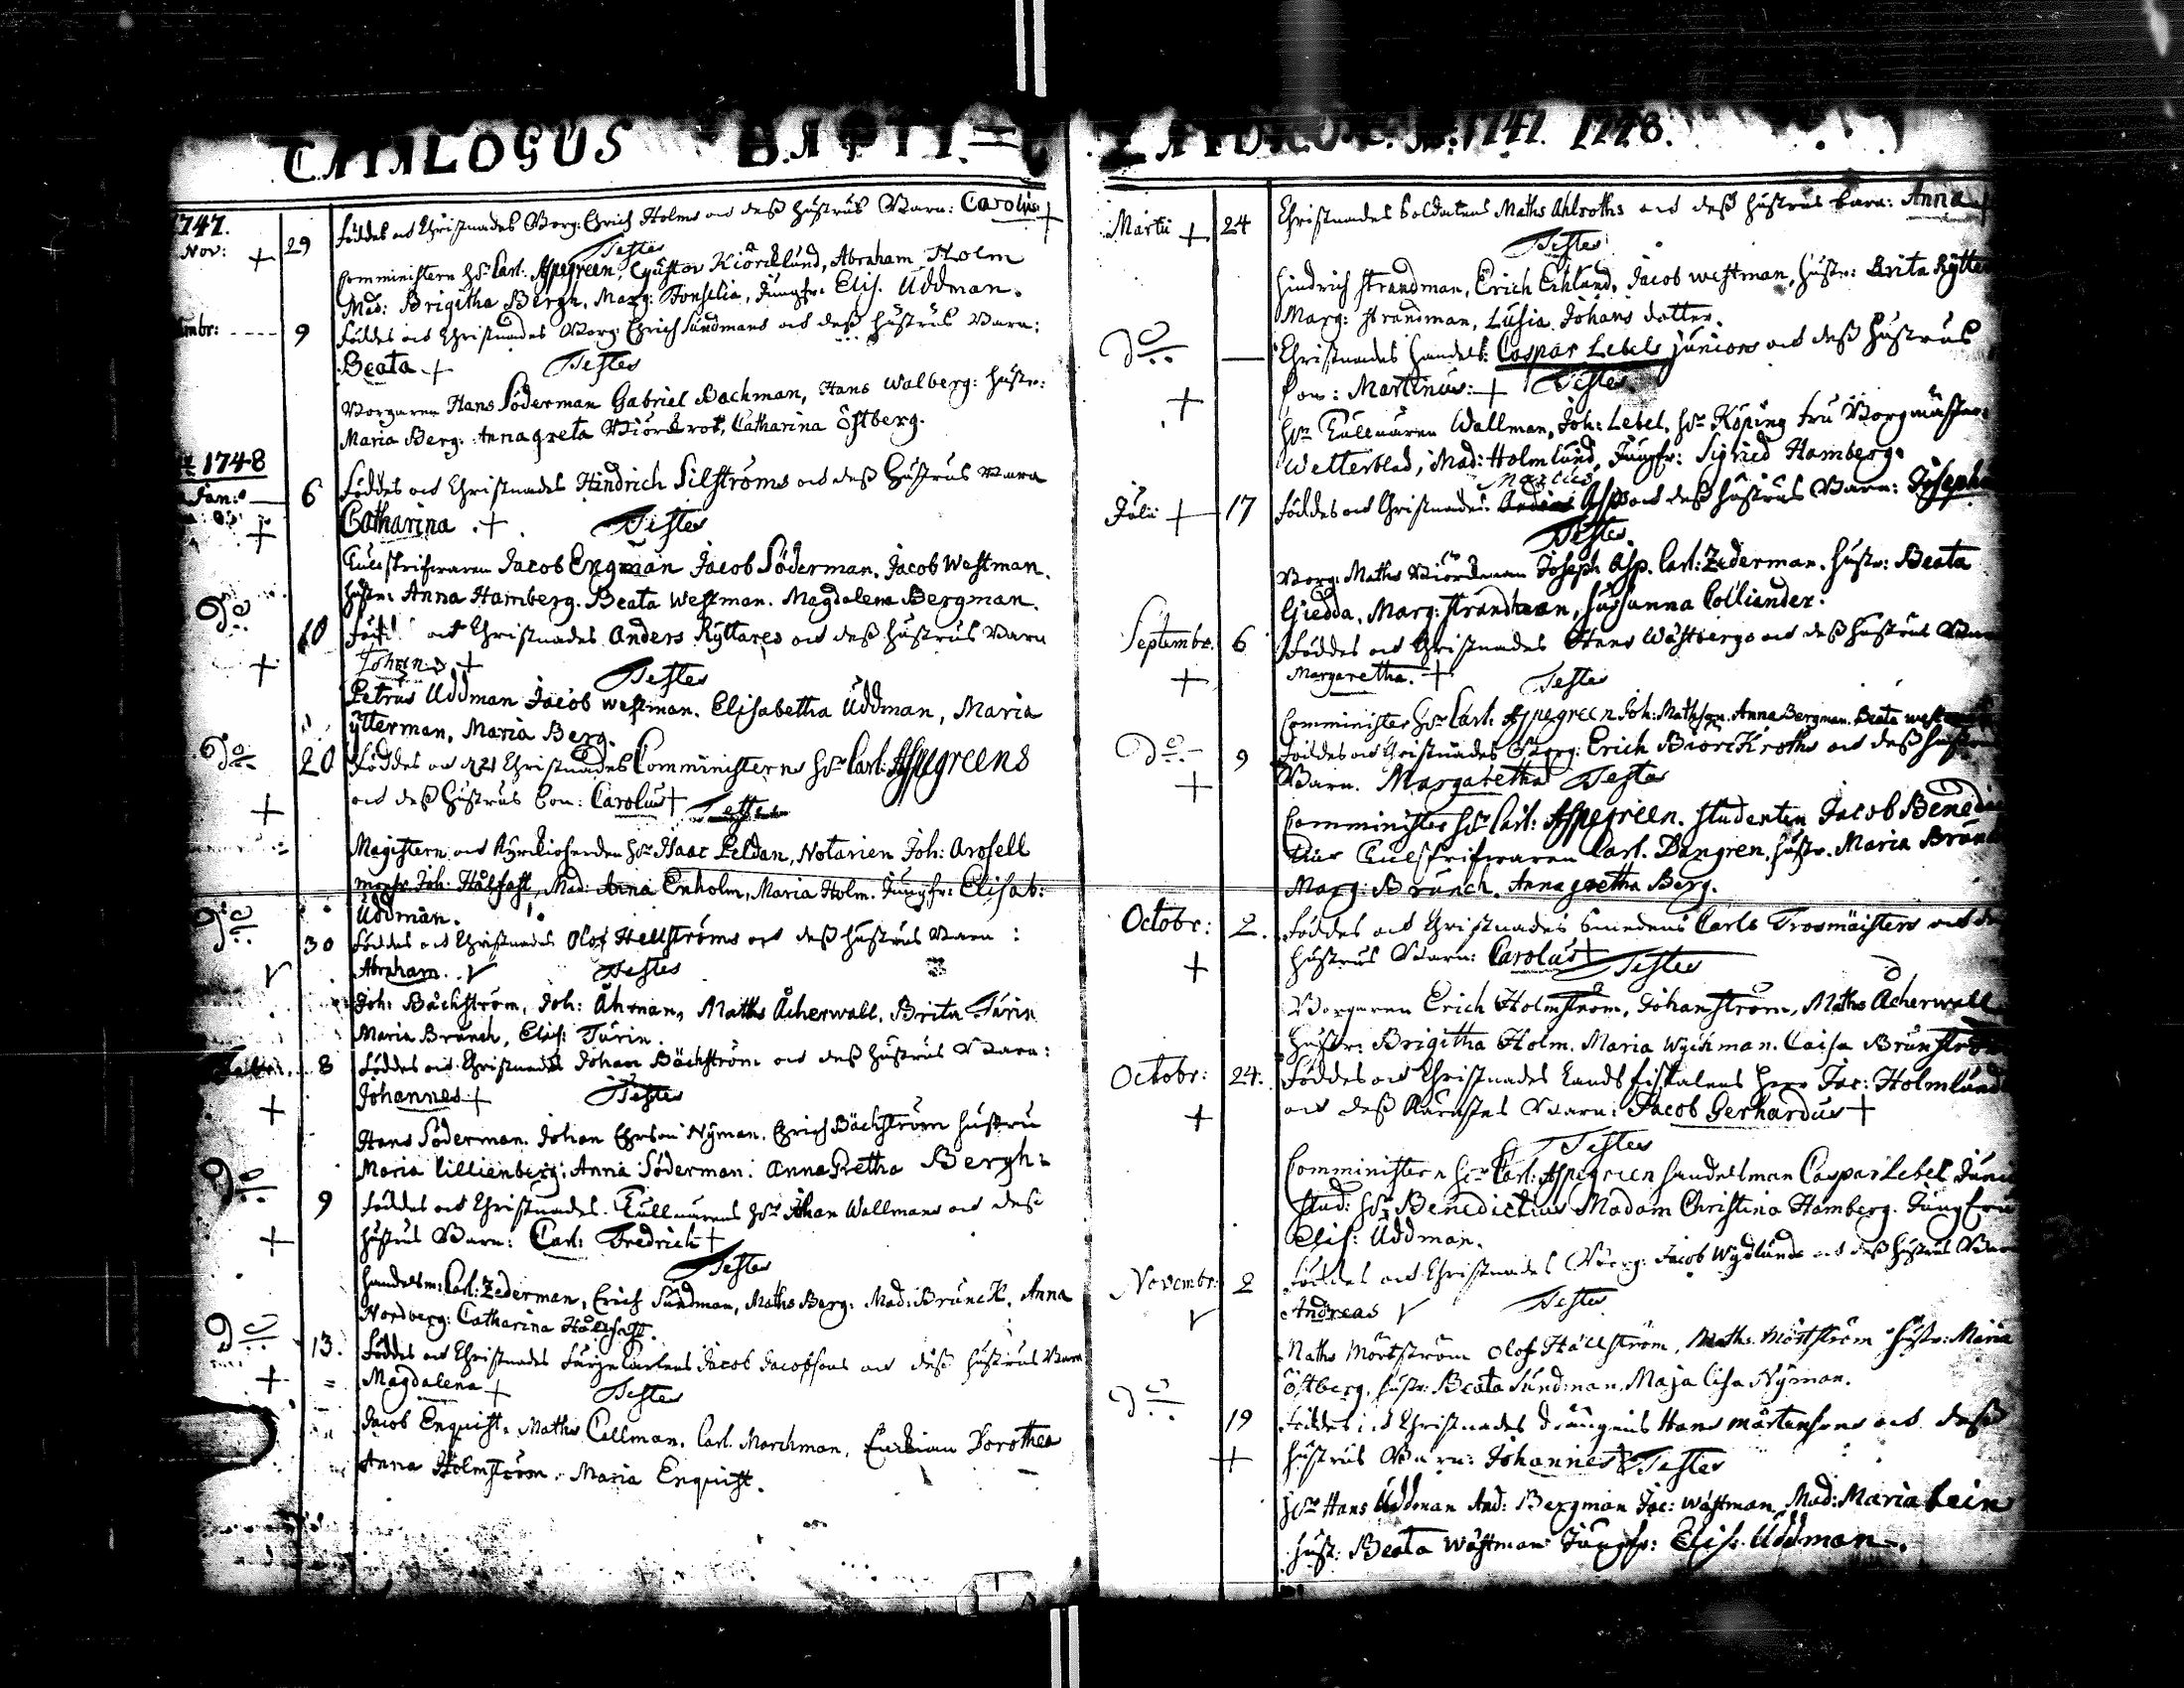 CATALOGUS BAPTI=
1747.
Nov: + 29 Föddes och Christnades Borg: Erich Holms och deß hustrus Barn: Carolus +
Testes
Comministern Hr Carl: Aspegreen, Gustav Kiörcklund, Abraham Holm
Mad: Brigitha Bergh, Marg: Fonselia, Jungfr: Elis. Uddman.
9 Föddes och Christnades Borg: Erich Sundmans och deß hustrus Barn:
Beata + Testes
Borgaren Hans Söderman Gabriel Bachman, Hans Walberg: hustr:
Maria Berg: Annagreta Biörkrot, Catharina Östberg.
1748
Jan: 6 Föddes och Christnades Hindrich Silströms och deß Hustrus Barn
+ Catharina + Testes
Tullskrifwaren Jacob Engman Jacob Söderman, Jacob Westman.
hustr: Anna Hamberg. Beata Westman. Magdalena Bergman.
Do 10 och Christnades Anders Ryttares och deß hustrus Barn
+ Johan + Testes
Petrus Uddman Jacob westman. Elisabetha Uddman, Maria
ytterman, Maria Berg.
Do 20 Föddes och 21 Christnades Comministerns Hr Carl: Aspegreens
+ och deß Hustrus Son: Carolus + Testes
Magistern och Kyrckioherden Hr Isaac Peldan, Notarien Joh: Arosell
monsr. Joh: Hålfast, Mad: Anna Enholm, Maria Holm. Jungfr: Elisab:
Uddman.
Do 30 Föddes och Christnades Olof Hellströms och deß hustrus Barn:
Abraham. Testes
Joh: Bäckström, Joh: Åhman, Maths Åcherwall, Brita Turin
Maria Brunch, Elis: Turin.
Febr: 8 Föddes och Christnades Johan Bäckström och deß hustrus Barn:
+ Johannes + Testes
Hans Söderman. Johan Nyman. Erich Bächström hustru
Maria Lillienberg. Anna Söderman. Anna Gretha Bergh:
Do 9 Föddes och Christnades Tullnärens Hr Johan Wallmans och deß
+ hustrus Barn: Carl: Fredrich +
Testes
Handelsm: Carl: Zederman, Erich Sundman, Maths Berg. Mad: Brunck, Anna
Nordberg: Catharina Hålfast.
Do 13. Föddes och Christnades Jacob Jacobsons och deß hustrus Barn
+ Magdalena + Testes
Jacob Enquist, Maths Cellman. Carl. Marchman, Dorothea
Anna Holmström, Maria Enquist.
1747. 1748.
Martii + 24 Christnades Soldatens Maths Ahlroths och deß hustrus barn: Anna
Testes
Hindrich Strandman, Erich Ekhlund, Jacob westman, hustr: Brita
Marg: Strandman, Lusia Johans dotter.
Do — Christnades handels: Caspar Lebels juniors och deß hustrus
+ Son: Martinus: + Testes.
Hr Tullnären Wallman, Joh: Lebel, Hr Köping fru Borgmäster
Wetterblad, Mad: Holmlund, Jungfr: Sigried Hamberg.
Julii + 17 Föddes och Christnades Marcus Asp och deß hustrus Barn:
Testes.
Borg: Maths Joseph Asp. Carl: Zederman. hustr: Beata
Giedda, Marg: Strandman, Susanna Colliander.
Septembr. 6 Föddes och Christnades Hans Wästbergs och deß hustrus
+ Margaretha. + Testes
Comminister Hr Carl: Aspegreen Joh: Mathson. Anna Bergman. Beata
Do 9 Föddes och Christnades Borg: Erich Biörckroths och deß
+ Barn. Margaretha Testes
Comminister Hr Carl: Aspegreen. Studenten Jacob
Tullskrifwaren Carl. Dangren, hustr. Maria
Marg: Brunch. Annagretha Berg.
Octobr: 2. Föddes och Christnades Smedens Carls Trosmäisters och
+ hustrus Barn: Carolus + Testes
Borgaren Erich Holmström, Johan ström, Maths Åcherwall
Hustr: Brigitha Holm. Maria Wyckman. Caisa
Octobr: 24. Föddes och Christnades Lands fiskalens Herr Jac: Holmlunds
+ och deß Käraftes Barn: Jacob Gerhardus +
Testes
Comministern Hr Carl: Aspegreen handelsman Caspar Lebel
Stud: Hr Benedictius Madam Christina Hamberg. Jungfru
Elis: Uddman.
Novembr: 2 Föddes och Christnades Borg: Jacob Wydlunds och deß hustrus
Andreas Testes
Maths Mörtström Olof Hällström, Maths Mörtström hustr: Maria
Östberg, hustr: Beata Sundman, Maja Lisa Nyman.
Do 19 Föddes och Christnades drängens Hans mårtensons och deß
+ hustrus Barn: Johannes + Testes
Hr Hans Uddman And: Bergman Jac: Wästman, Mad: Maria
hustr: Beata Wästman Jungfr: Elis: Uddman.